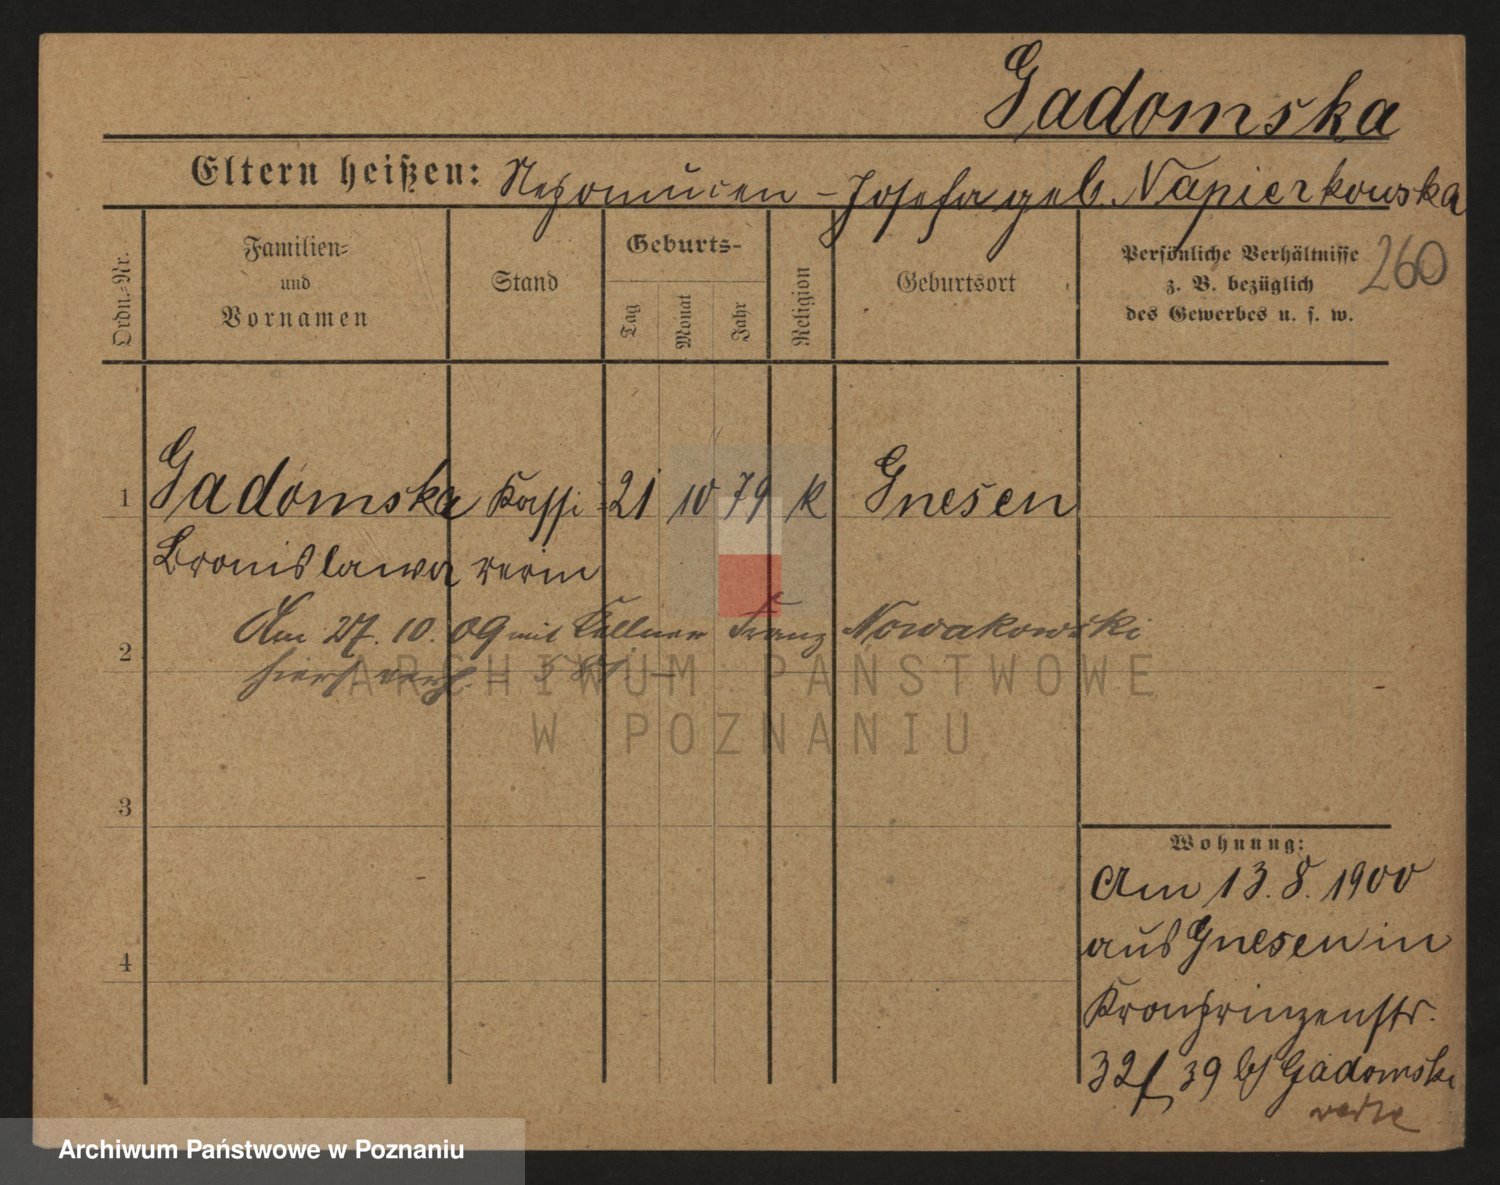 Gadomska
Eltern heißen: Nepomucen - Josefa geb. Napierkowska
Ordn.-Nr.
Familien- und Vornamen
Stand
Geburts-
Tag
Monat
Jahr
Religion
Geburtsort
Persönliche Verhältnisse
z. B. bezüglich
des Gewerbes u. s. w.
260
1 Gadomska Kassi- 21 10 79 k Gnesen
Bronislawa rerin
Am 27. 10. 09 mit Kellner Franz Nowakowski
2 hier verh.
ARCHIWUM PAŃSTWOWE
W POZNANIU
3
4
Wohnung:
Am 13. 8. 1900
aus Gnesen in
Kronprinzenstr.
32 39 b/ Gadomski
Archiwum Państwowe w Poznaniu